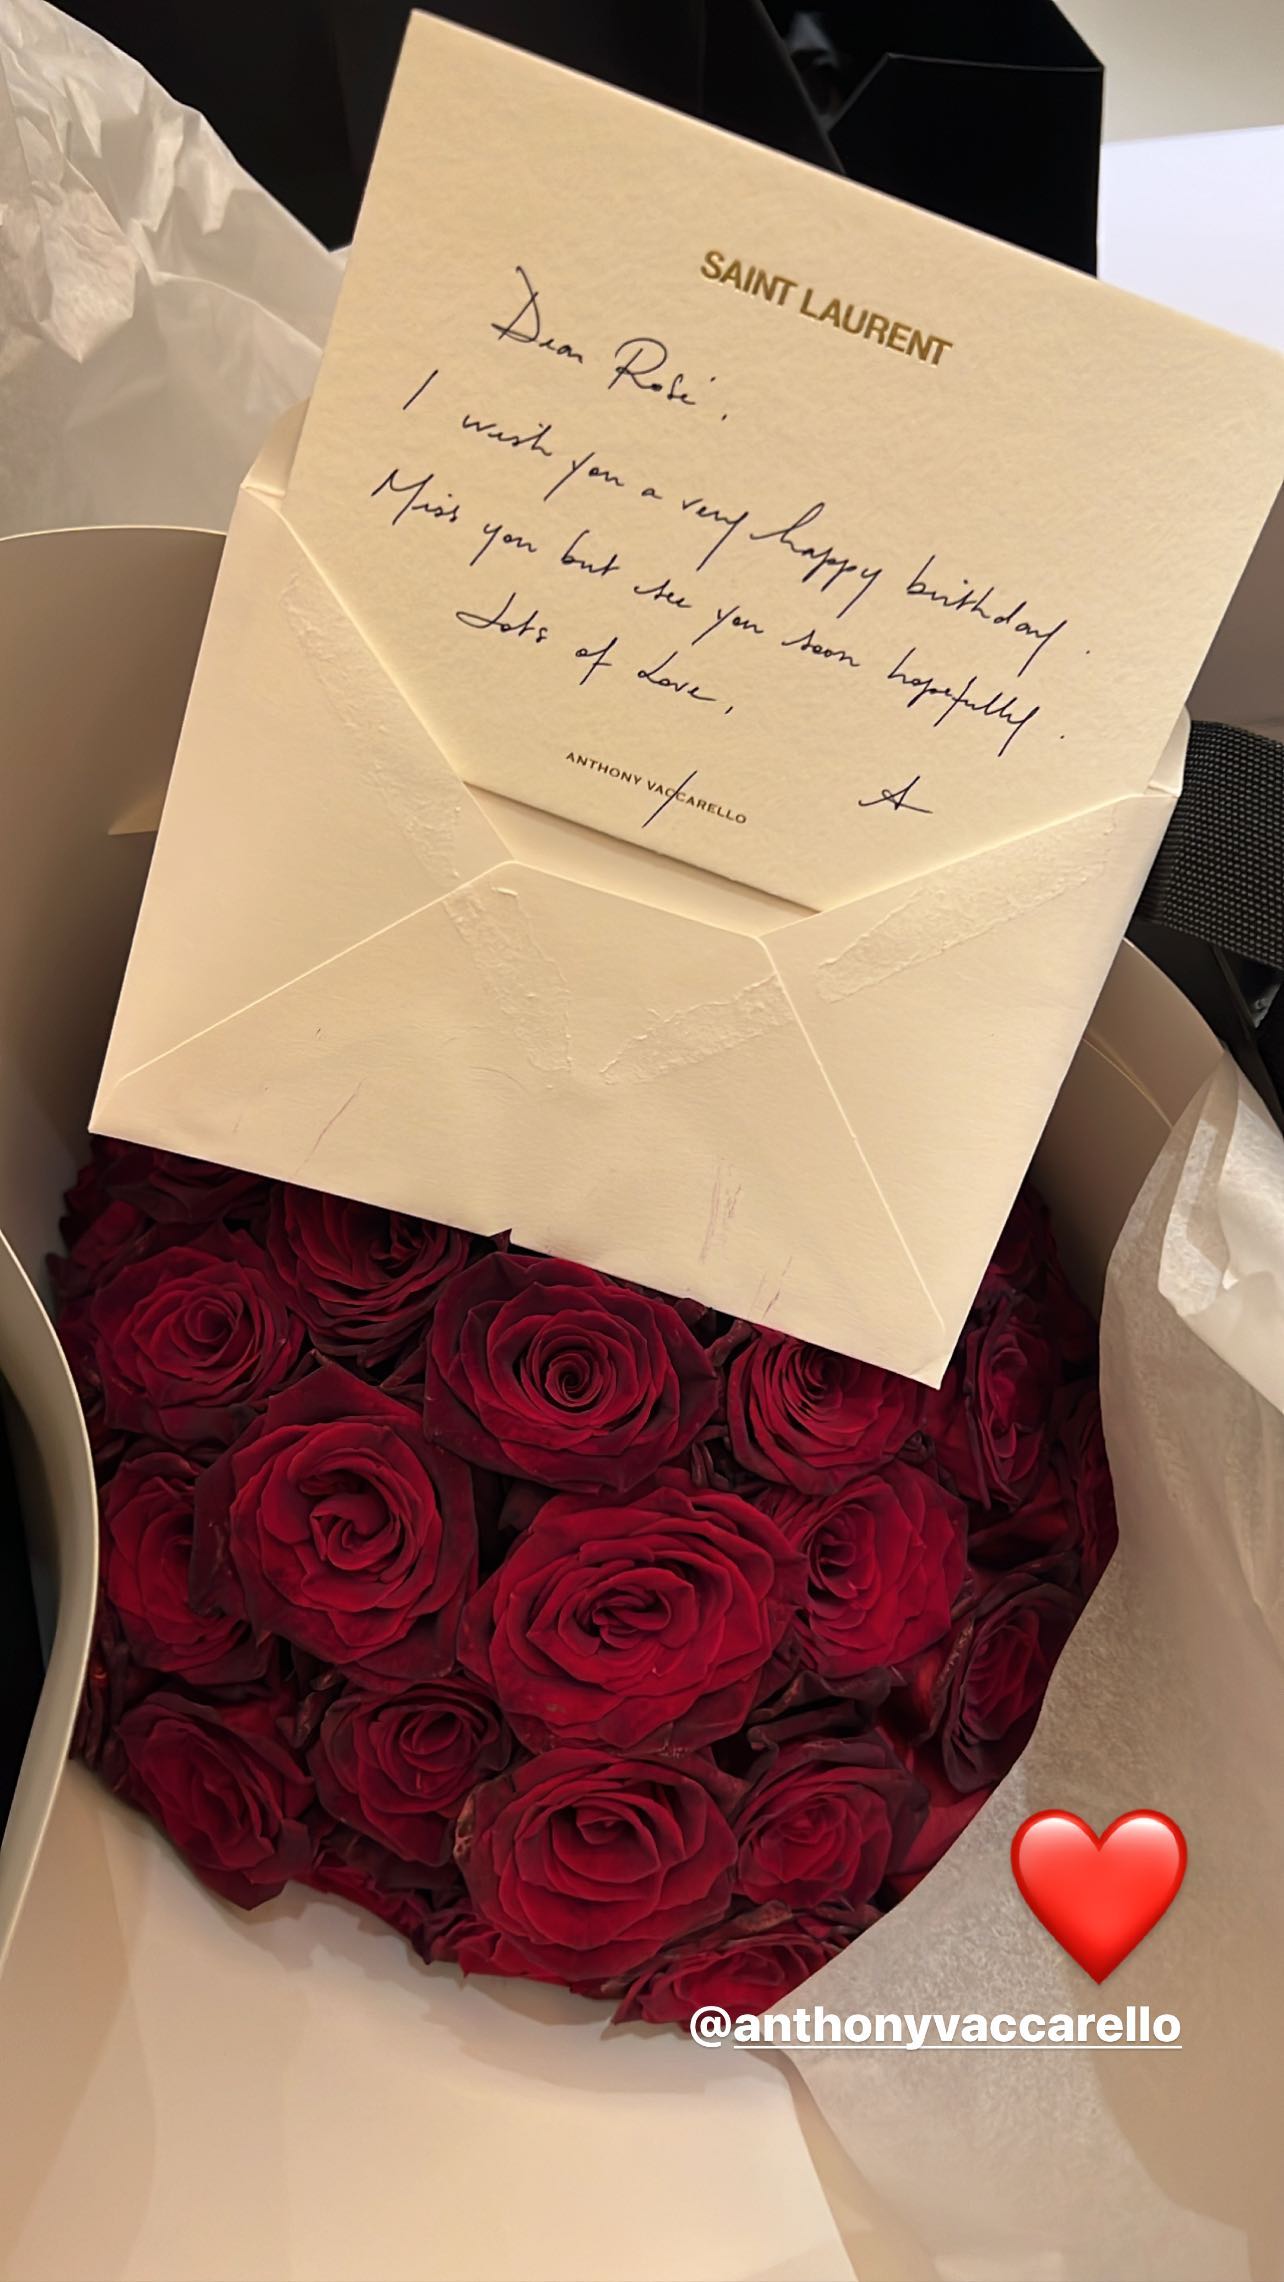 SAINT LAURENT
Dear Rosé,
I wish you a very happy birthday.
Miss you but see you soon hopefully.
Lots of Love,
A
ANTHONY VACCARELLO
@anthonyvaccarello